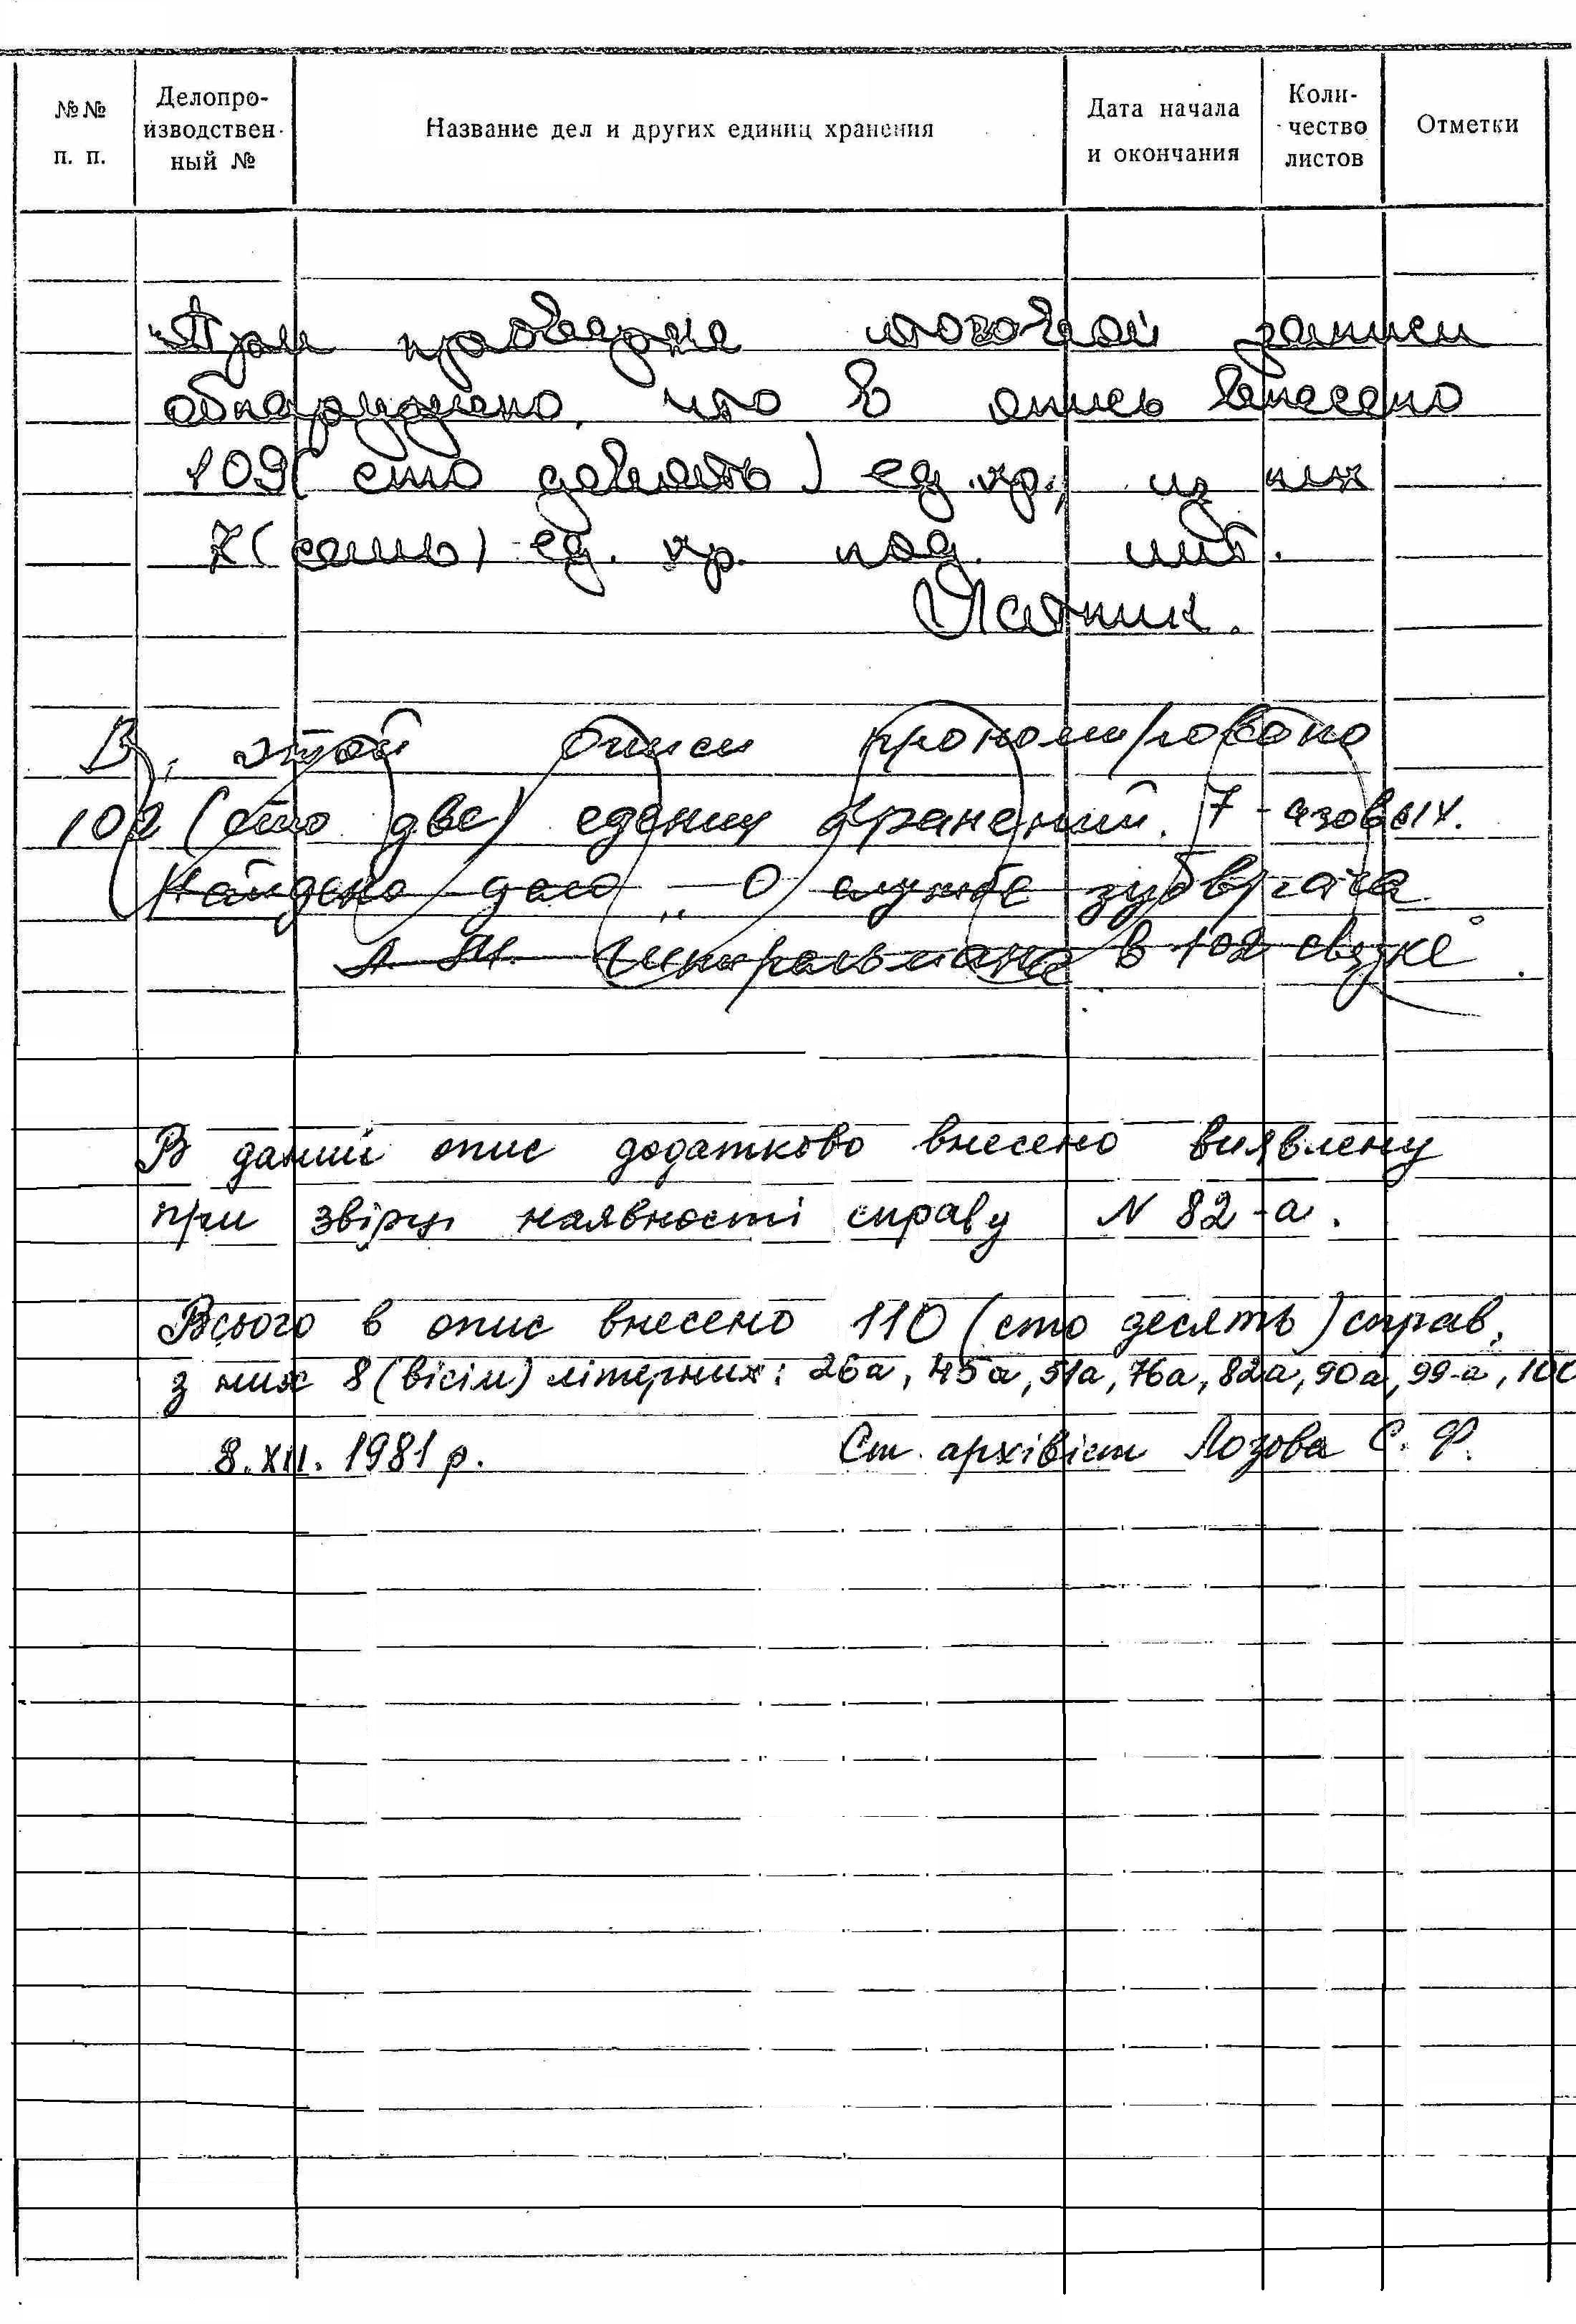 №№ п. п.
Делопро-
изводствен-
ный №
Название дел и других единиц хранения
Дата начала
и окончания
Коли-
чество
листов
Отметки
При проверке итоговой записи
обнаружено, что в опись внесено
109 (сто девять) ед. хр., из них
7 (семь) ед. хр. под лит.
В этой описи прономировано
102 (сто две) едениц хранений. 7 - азовых.
Найдено дело „О службе зубврача
в 102 связке
В даний опис додатково внесено виявлену
при звірці наявності справу N 82-а.
Всього в опис внесено 110 (сто десять) справ,
з них 8 (вісім) літерних: 26а, 45а, 51а, 76а, 82а, 90а, 99-а,
8.XII. 1981 р. Ст. архівіст Лозова С. Ф.